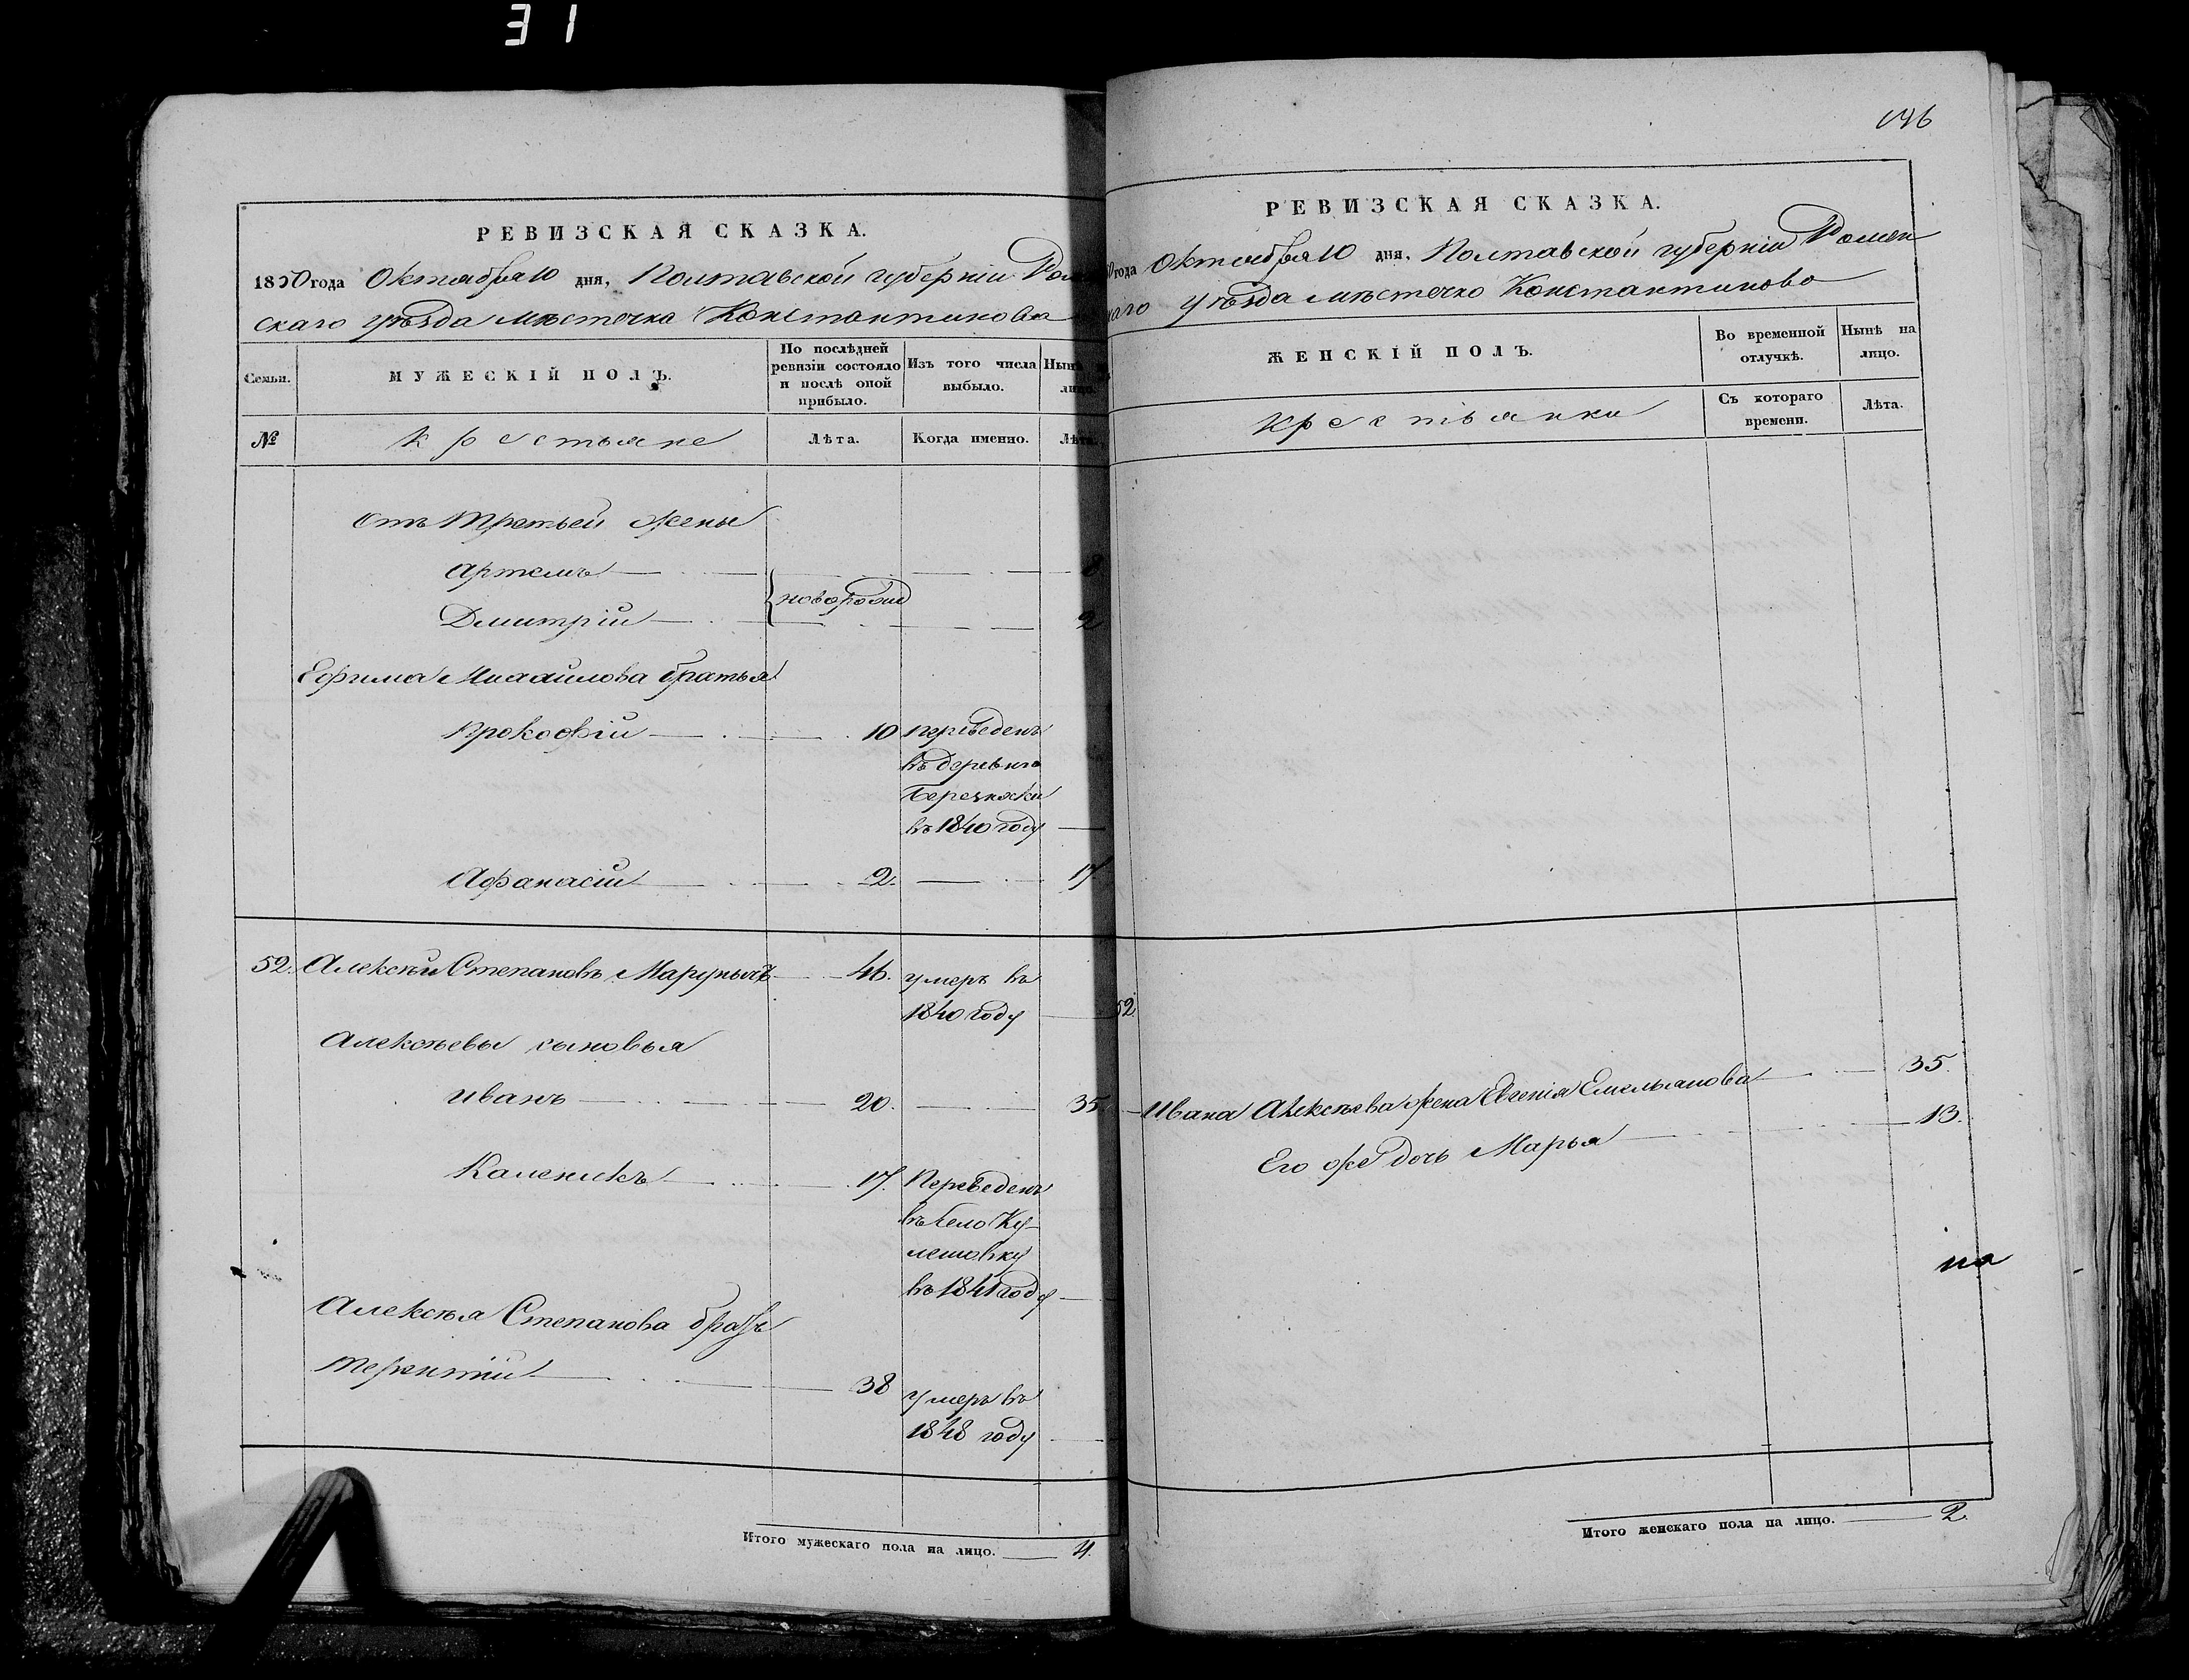 31
РЕВИЗСКАЯ СКАЗКА.
1850 года Октября 10 дня, Полтавской губерніи Ромен
скаго уѣзда мѣстечка Константинова
Семьи.
МУЖЕСКІЙ ПОЛЪ.
По послѣдней ревизіи состояло и послѣ оной прибыло.
Изъ того числа выбыло.
Нынѣ на лицо.
№
Крестьяне
Лѣта.
Когда именно.
Лѣта.
Отъ третьей жены
Артемъ 8
новорожд
Дмитрій 2
Ефима Михайлова братья
Прокофій 10 переведенъ
въ деревню
Березняки
въ 1840 году
Афанасій 2. 17.
52. Алексѣй Степановъ 46. умеръ въ
1840 году
Алексѣевы сыновья
Иванъ 20. 35
Каленикъ 17. Переведенъ
въ село Ку-
лешовку
въ 1841 году
Алексѣя Степанова братъ
Терентій 38 умеръ въ
1848 году
Итого мужескаго пола на лицо. 4.
146
РЕВИЗСКАЯ СКАЗКА.
0 года Октября 10 дня, Полтавской губерніи Ромен
каго уѣзда мѣстечко Константиново
ЖЕНСКІЙ ПОЛЪ.
Во временной отлучкѣ.
Нынѣ на лицо.
Крестьянки
Съ котораго времени.
Лѣта.
52.
Ивана Алексѣева жена Евгенія Емельянова 35.
Его же дочь Марья 13.
на
Итого женскаго пола на лицо. 2.